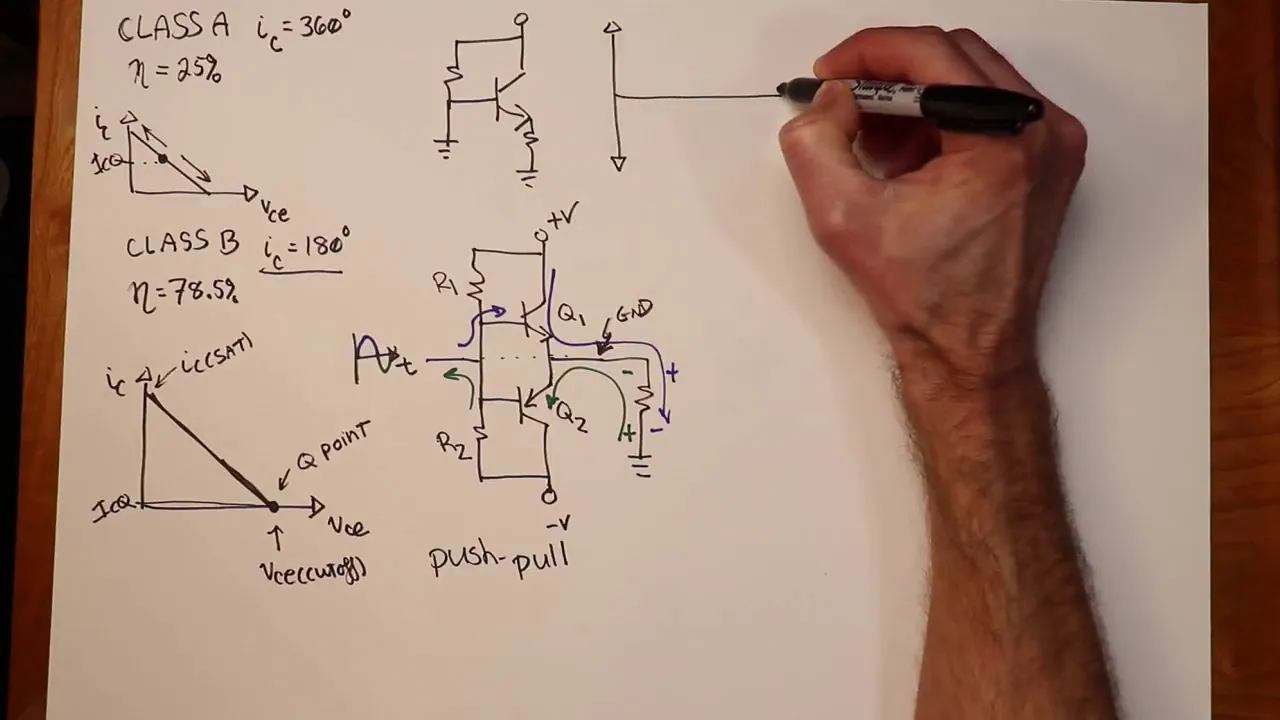 CLASS A i_c = 360°
η = 25%
i_c
I_CQ
V_ce
CLASS B i_c = 180°
η = 78.5%
i_c
i_c(SAT)
Q POINT
I_CQ
V_ce
V_ce(cutoff)
+V
R1
Q1
GND
t
- +
R2
Q2
+ -
-V
push-pull
Sharpie